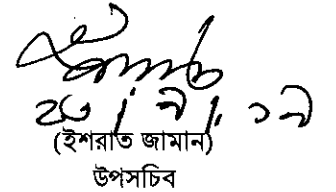 ২৩।৭।১৭
(ইশরাত জামান)
উপসচিব